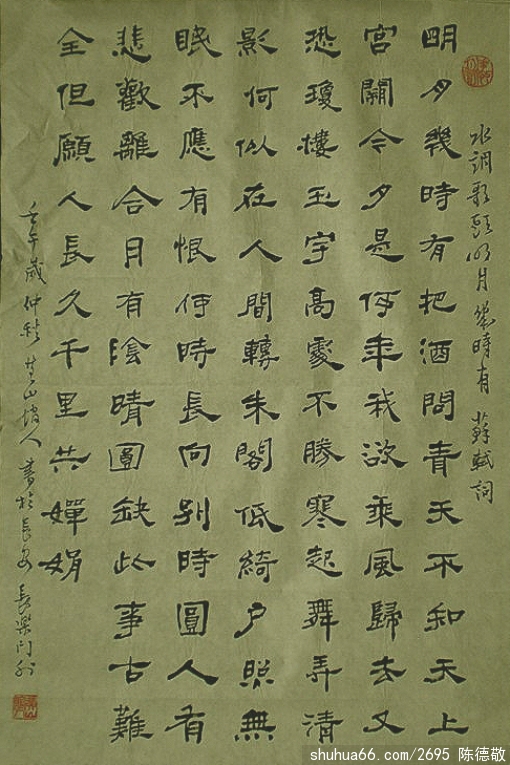 水調歌頭 明月幾時有 蘇軾詞
明月幾時有把酒問青天不知天上
宮闕今夕是何年我欲乘風歸去又
恐瓊樓玉宇高處不勝寒起舞弄清
影何似在人間轉朱閣低綺戶照無
眠不應有恨何時長向別時圓人有
悲歡離合月有陰晴圓缺此事古難
全但願人長久千里共嬋娟
壬午歲仲秋 山人書於長安長樂門外
shuhua66.com/2695 陈德敬